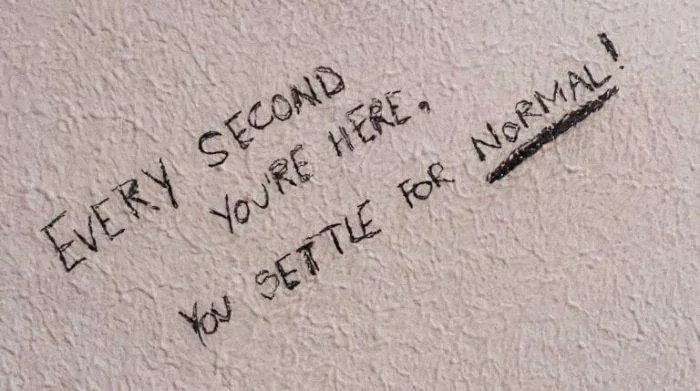 EVERY SECOND
YOU'RE HERE,
YOU SETTLE FOR NORMAL!